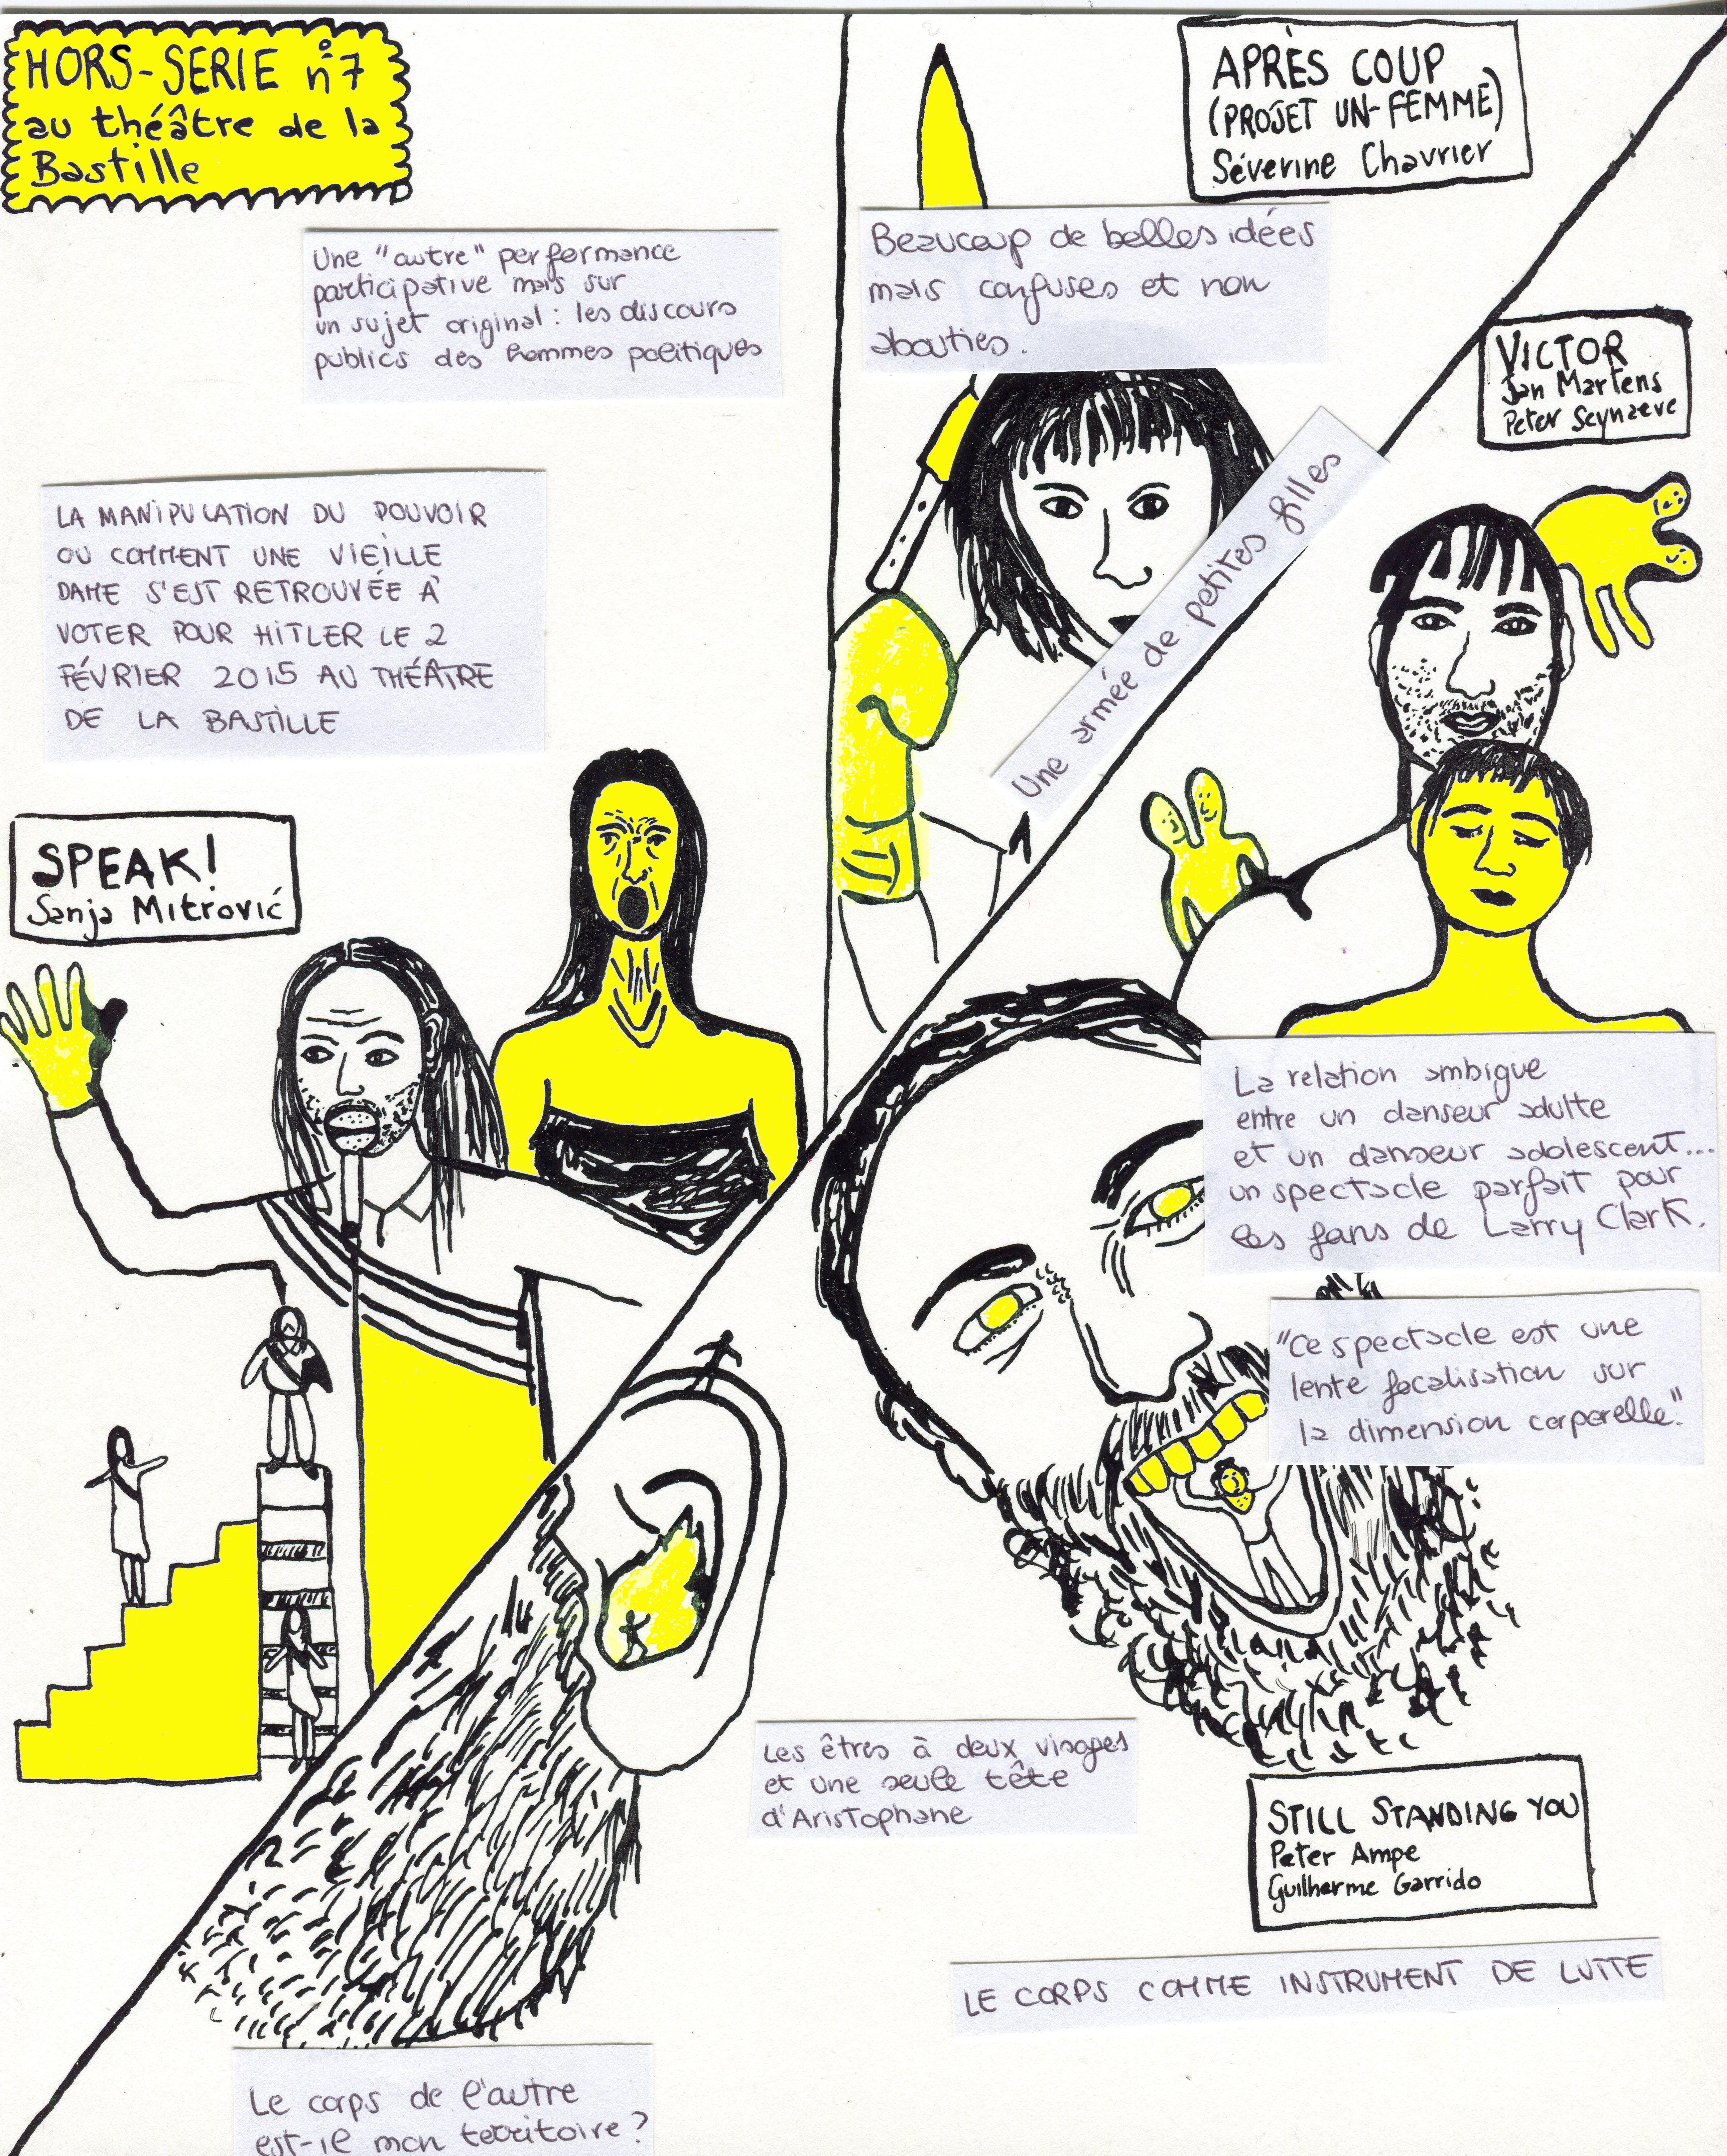 HORS-SERIE n°7
au théâtre de la
Bastille
Une "autre" performance
participative mais sur
un sujet original : les discours
publics des hommes politiques
LA MANIPULATION DU POUVOIR
OU COMMENT UNE VIEILLE
DAME S'EST RETROUVÉE À
VOTER POUR HITLER LE 2
FÉVRIER 2015 AU THÉÂTRE
DE LA BASTILLE
SPEAK!
Sanja Mitrović
APRÈS COUP
(PROJET UN-FEMME)
Séverine Chavrier
Beaucoup de belles idées
mais confuses et non
abouties.
Une armée de petites filles
VICTOR
Jan Martens
Peter Seynaeve
La relation ambigue
entre un danseur adulte
et un danseur adolescent...
un spectacle parfait pour
les fans de Larry Clark.
"Ce spectacle est une
lente focalisation sur
la dimension corporelle."
Les êtres à deux visages
et une seule tête
d'Aristophane
STILL STANDING YOU
Peter Ampe
Guilherme Garrido
LE CORPS COMME INSTRUMENT DE LUTTE
Le corps de l'autre
est-il mon territoire ?